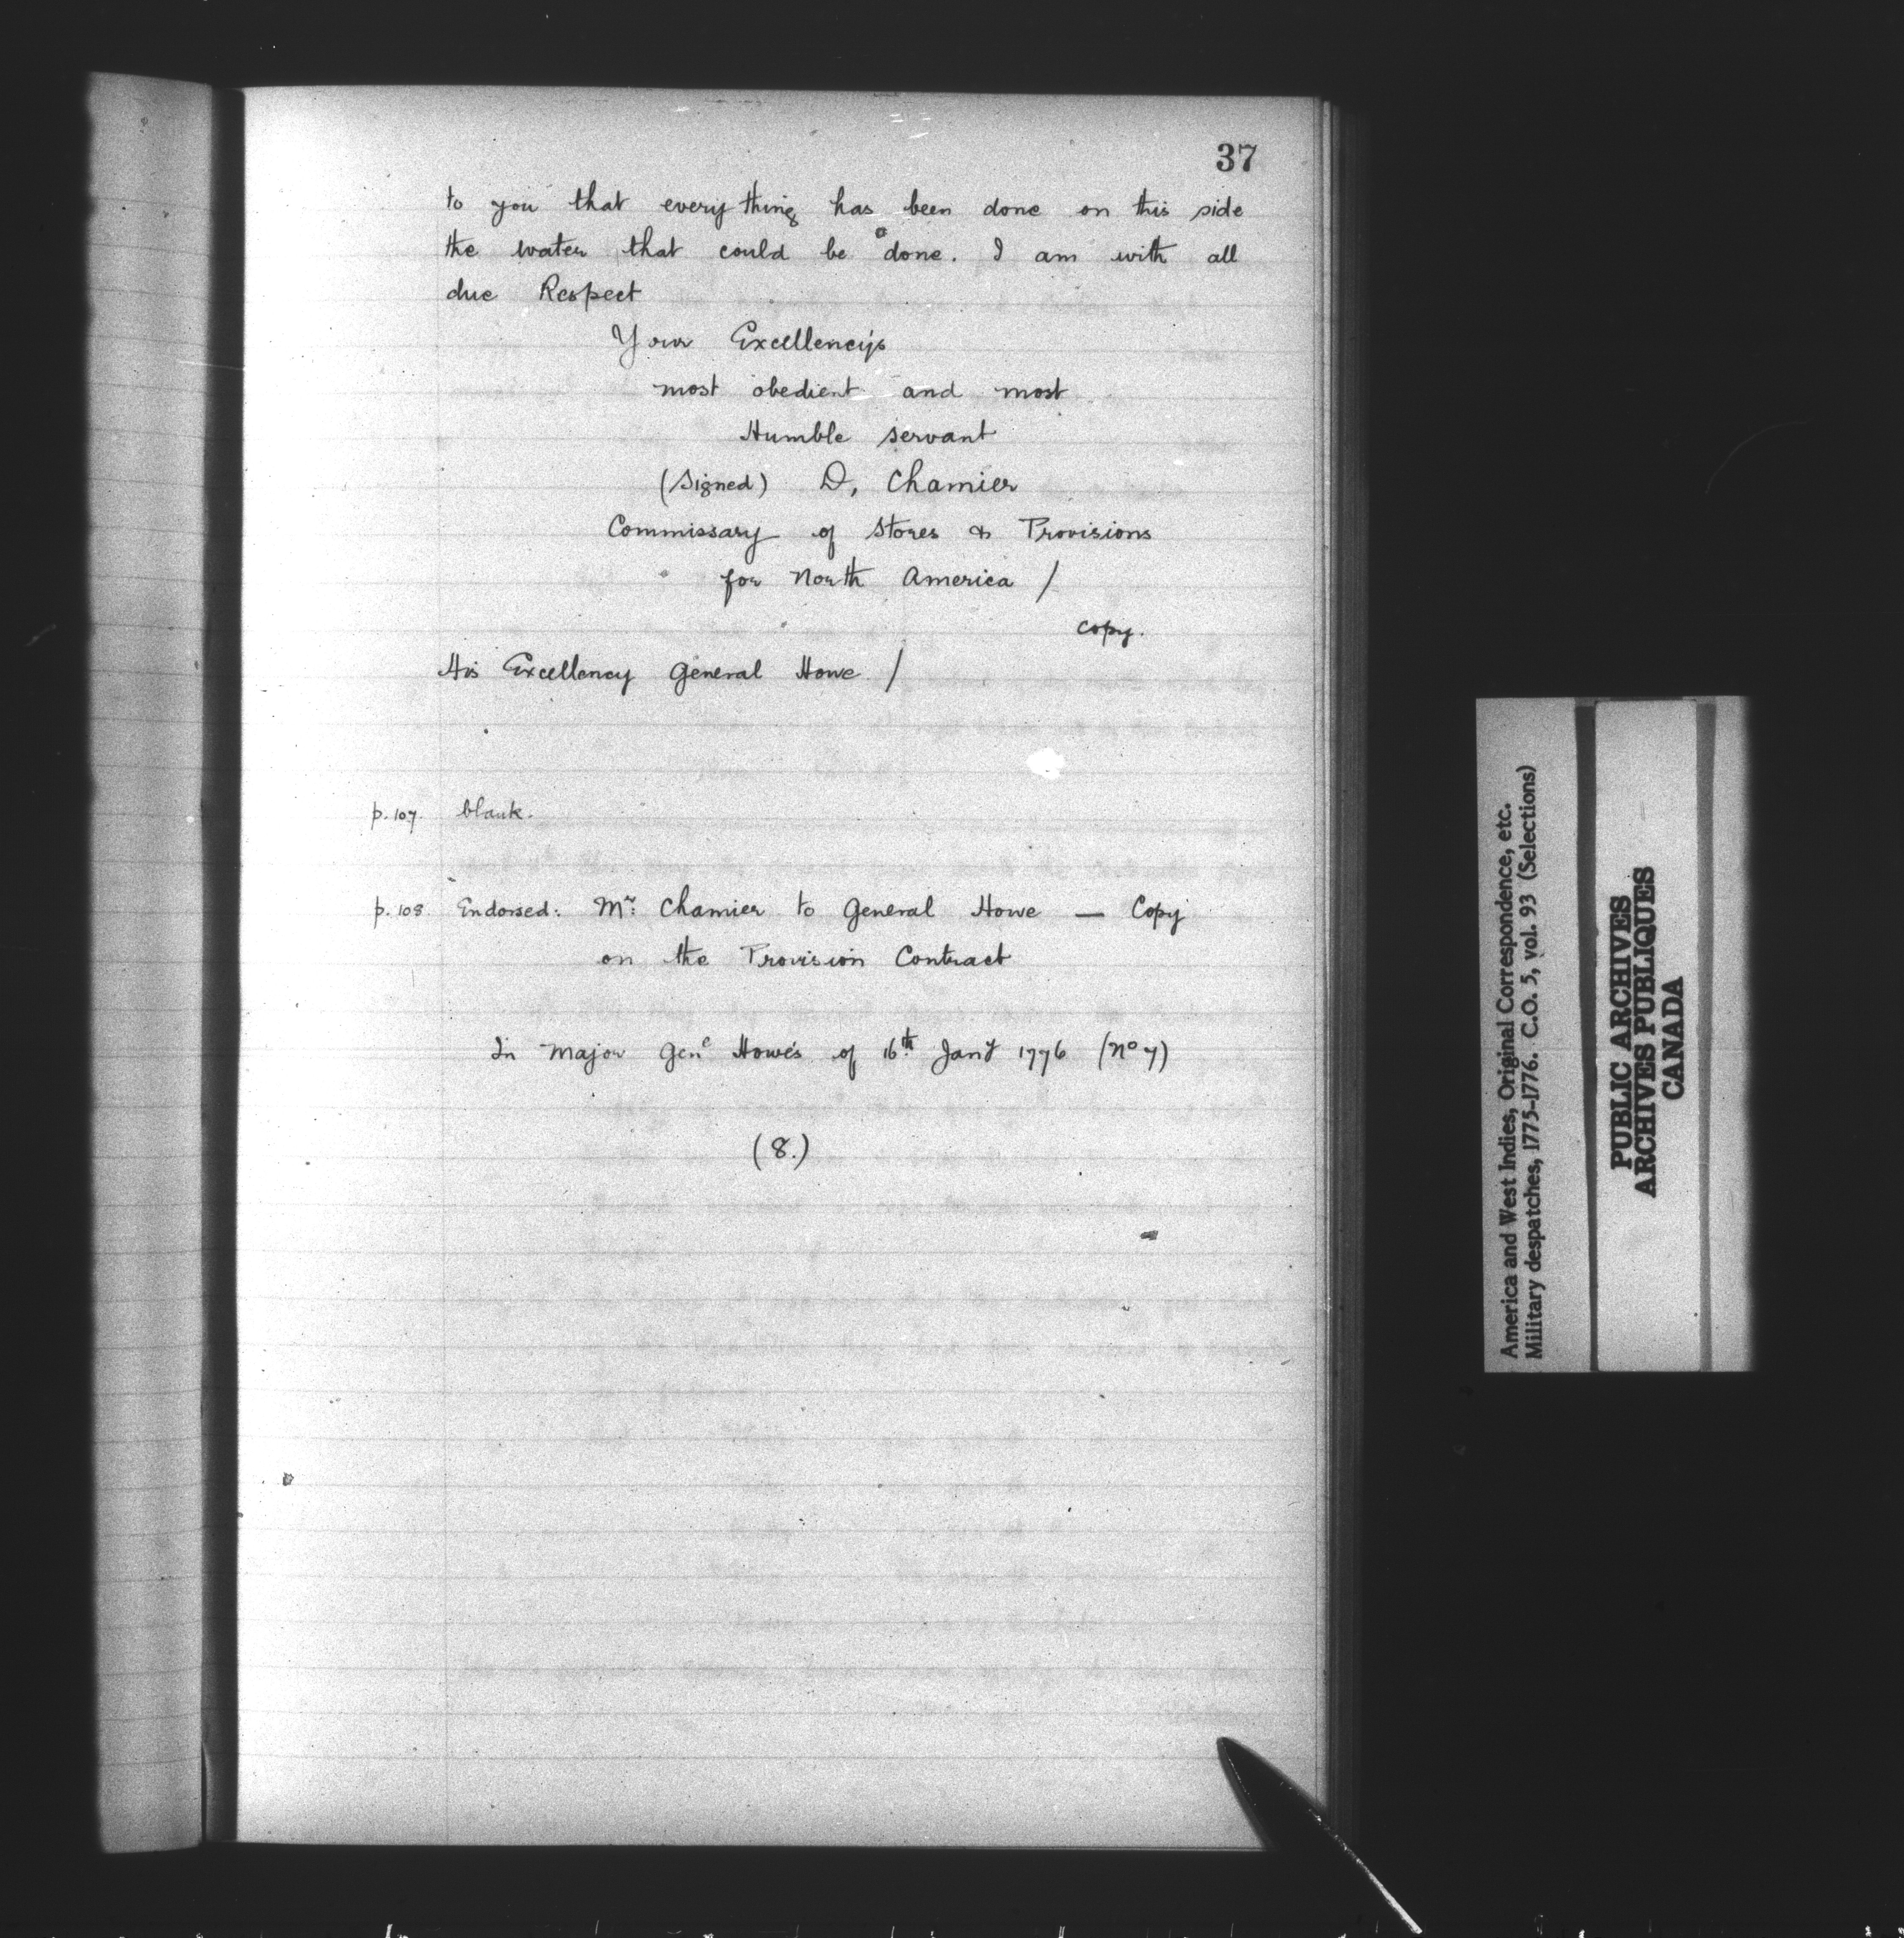 37
to you that every thing has been done on this side
the water that could be done. I am with all
due Respect
Your Excellency's
most obedient and most
Humble servant
(Signed) D, Chamier
Commissary of Stores & Provisions
for North America /
copy.
His Excellency General Howe /
p. 107. blank.
p. 108. Endorsed: Mr: Chamier to General Howe — Copy
on the Provision Contract
In Major Genl Howe's of 16th Jany 1776 (No 7)
(8.)
America and West Indies, Original Correspondence, etc.
Military despatches, 1775-1776. C.O. 5, vol. 93 (Selections)
PUBLIC ARCHIVES
ARCHIVES PUBLIQUES
CANADA